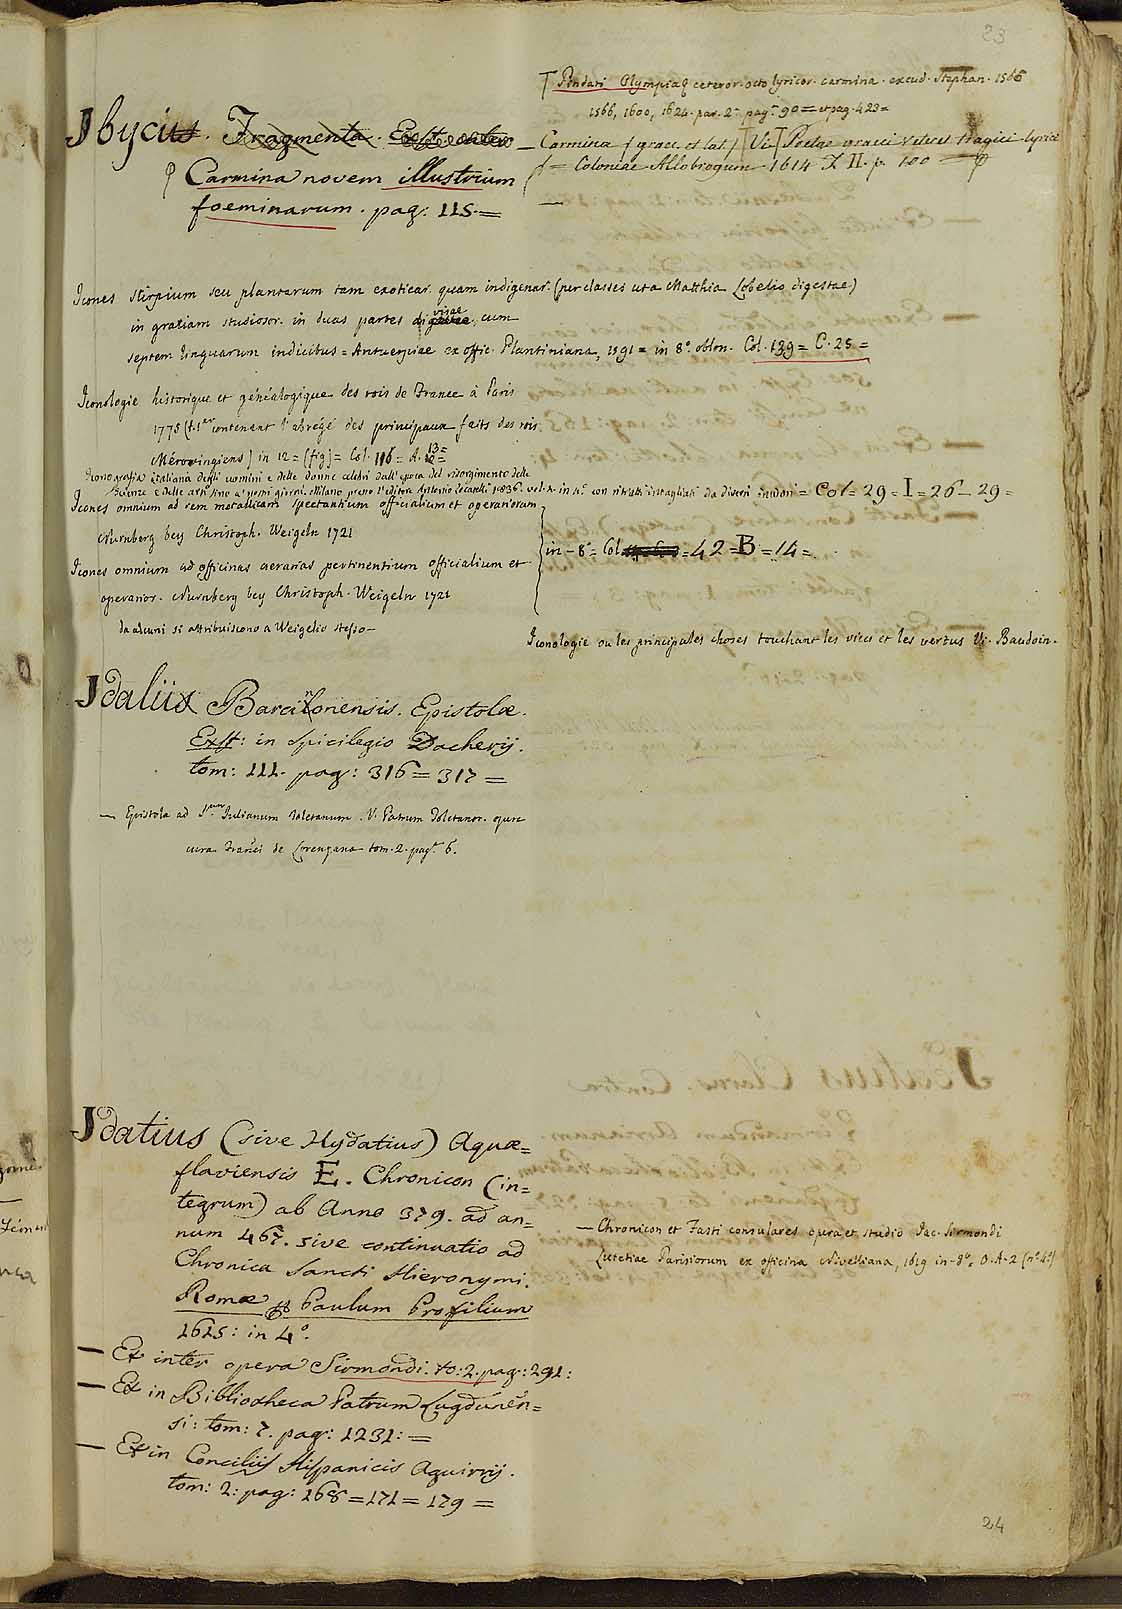 23
Ibycius. Fragmenta. Exst. inter
Carmina novem illustrium
foeminarum. pag: 115. =
Pindari Olympia & ceteror. octo lyricor. carmina. excud. Stephan. 1566
1566, 1600, 1624. par. 2.ª pag.ª 90 = et pag. 423 =
— Carmina (graec. et lat.) Vi. Poetae graeci veteres tragici lyrici
= Coloniae Allobrogum 1614 T. II. p. 100
Icones stirpium seu plantarum tam exoticar. quam indigenar. (per classes ut a Matthia Lobelio digestae)
in gratiam studiosor. in duas partes digestae visae cum
septem linguarum indicibus = Antuerpiae ex offic. Plantiniana, 1591 = in 8.º oblon. Col. 139 = C. 25 =
Iconologie historique et généalogique des rois de France à Paris
1775 (t. 1.er contenant l'abrégé des principaux faits des rois
Mérovingiens) in 12 = (fig) = Col. 116 = A. 13 =
Iconografia italiana degli uomini e delle donne celebri dall'epoca del risorgimento delle
scienze e delle arti fino a' nostri giorni. Milano presso l'editore Antonio Locatelli 1836. vol. in 4.º con ritratti intagliati da diversi incisori = Col = 29 = I = 26 — 29 =
Icones omnium ad rem metallicam spectantium officialium et operariorum
Nurnberg bey Christoph. Weigeln 1721
in - 8.º = Col = 42 = B = 14 =
Icones omnium ad officinas aerarias pertinentium officialium et
operarior. Nurnberg bey Christoph. Weigeln 1721
da alcuni si attribuiscono a Weigelio stesso —
Iconologie ou les principales choses touchant les vices et les vertus Vi. Baudoin.
Idalii Barcinonensis. Epistolæ.
Exst: in Spicilegio Dacherij.
tom: 111. pag: 316 = 317 =
— Epistola ad S.um Julianum Toletanum. V. Patrum Toletanor. opera
cura Franci de Lorenzana tom. 2. pag.ª 6.
Idatius (sive Hydatius) Aquæ=
flaviensis E. Chronicon (in=
tegrum) ab Anno 379. ad an=
num 467. sive continuatio ad
Chronica Sancti Hieronymi.
Romæ Paulum Profilium
1615: in 4.º
— Chronicon et Fasti consulares opera et studio Jac. Sirmondi
Lutetiae Parisiorum ex officina Nivelliana, 1619 in-8.º O. A. 2 (n.º 4.º)
— Et inter opera Sirmondi. to: 2. pag: 291:
— Et in Bibliotheca Patrum Lugdunen=
si: tom: 7. pag: 1231: =
— Et in Conciliis Hispanicis Aguirrij.
tom: 2: pag: 168 = 171 = 179 =
24